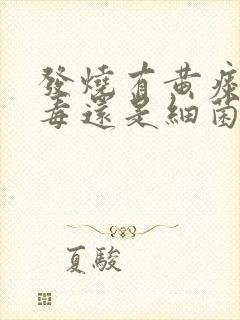 發燒有黃痰
毒還是細菌
夏駿